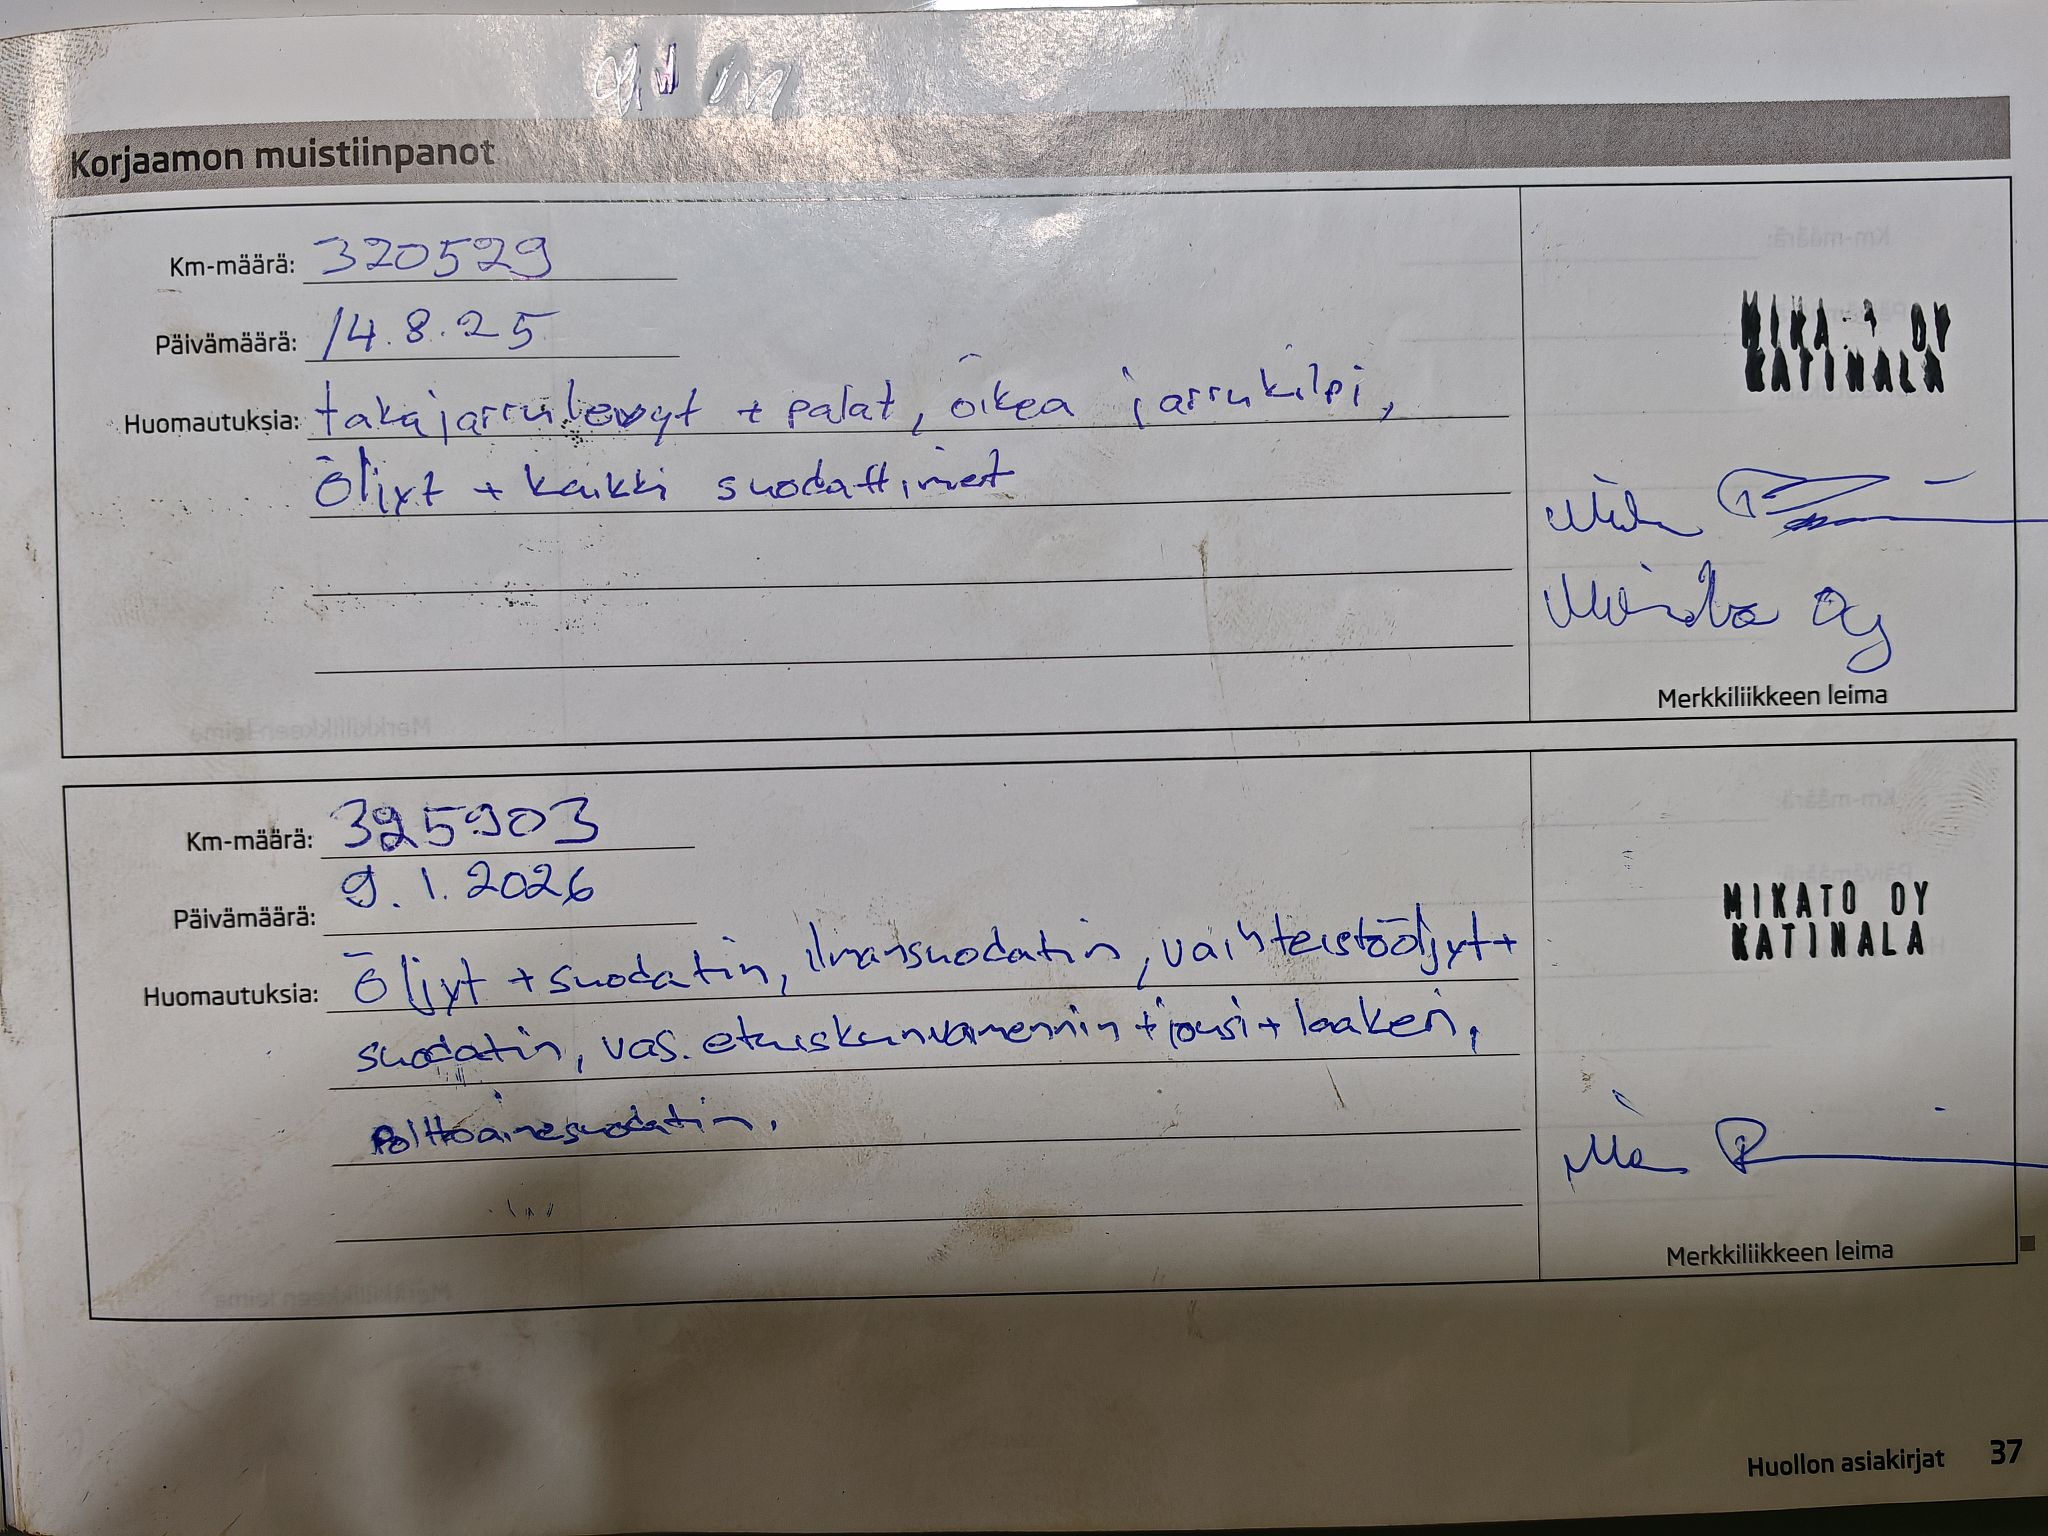 Korjaamon muistiinpanot
Km-määrä: 320529
Päivämäärä: 14.8.25
Huomautuksia: takajarrulevyt + palat, oikea jarrukilpi,
öljyt + kaikki suodattimet
MIKA OY
KATINALA
Oy
Merkkiliikkeen leima
Km-määrä: 325903
Päivämäärä: 9.1.2026
Huomautuksia: Öljyt + suodatin, ilmansuodatin, vaihteistoöljyt +
suodatin, vas. etuiskunvaimennin + jousi + laakeri,
Polttoainesuodatin.
MIKATO OY
KATINALA
Merkkiliikkeen leima
Huollon asiakirjat 37